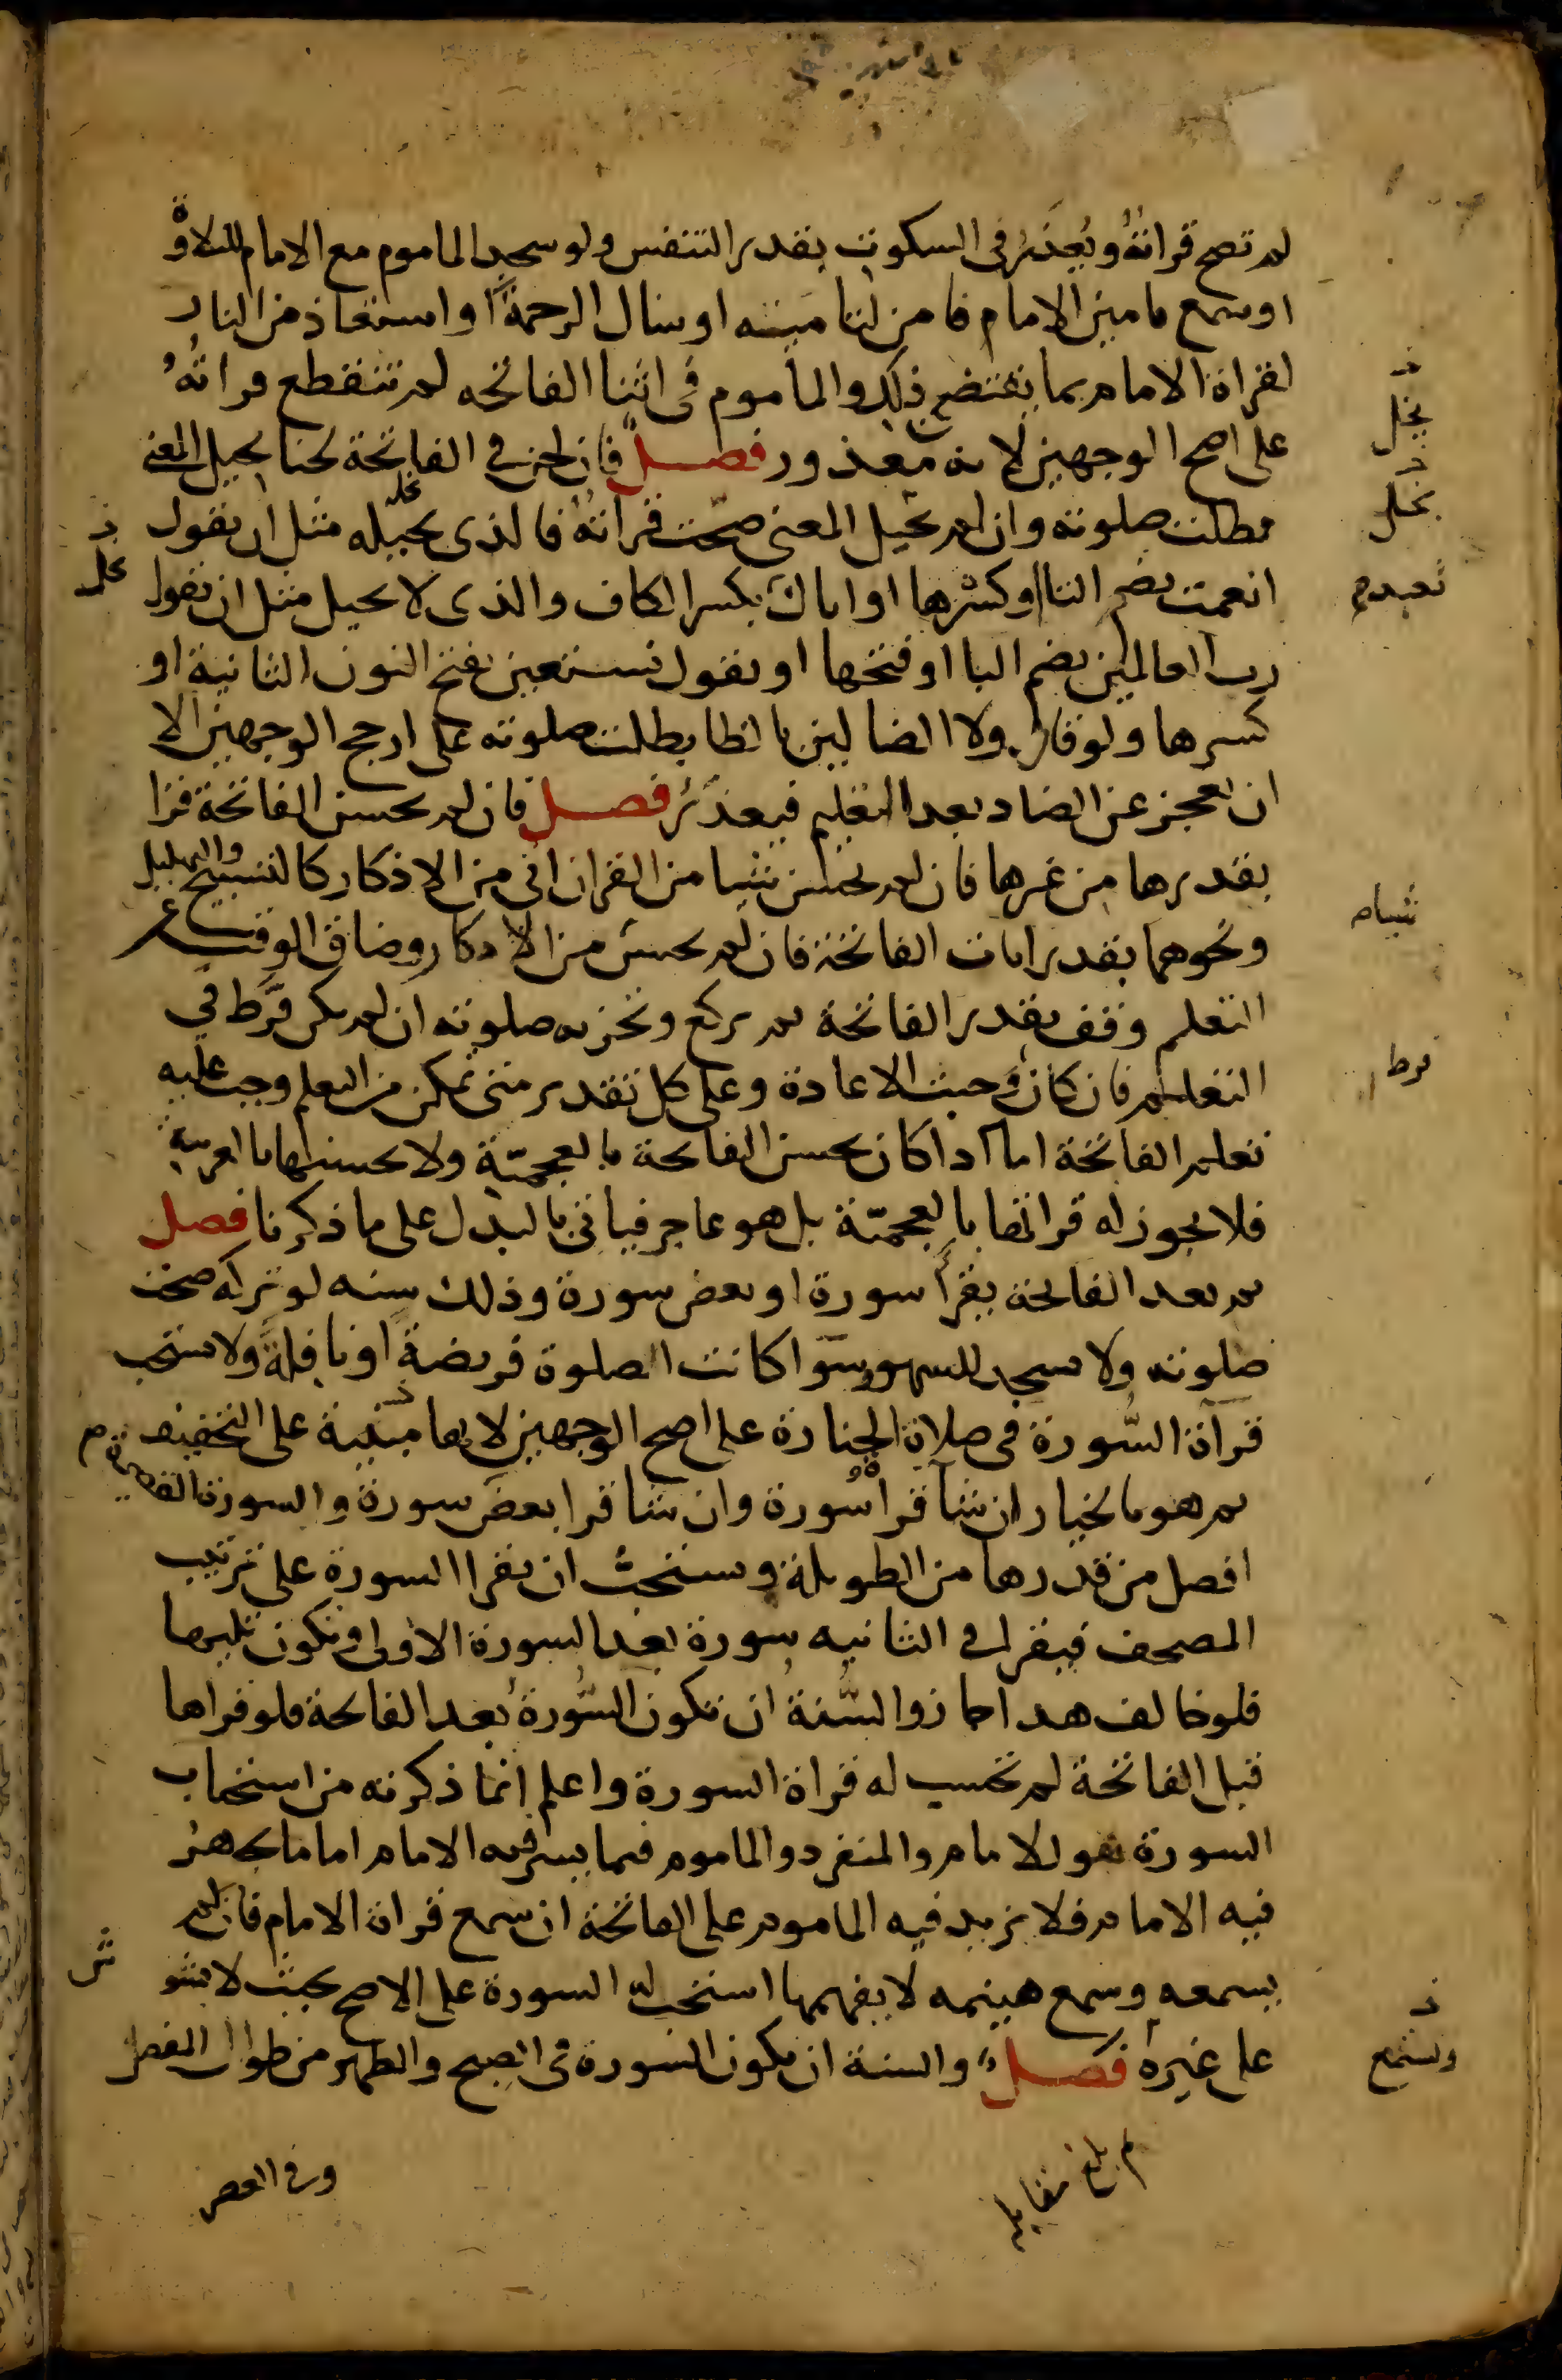 لم تصح قراته ويعذر في السكوت بقدر التنفس ولو سجد الماموم مع الامام للتلاوة
او سمع تامين الامام فامن لتامينه او سال الرحمة او استعاذ من النار
لقراة الامام بما يقتضي ذلك والماموم في اثنا الفاتحه لم تنقطع قراته
على اصح الوجهين لانه معذور فصل فان لحن في الفاتحة لحنا يحيل المعنى
بطلت صلوته وان لم يحيل المعنى صحت قراته فالذي يحيله مثل ان يقول
انعمت بضم التا او كسرها او اياك بكسر الكاف والذي لا يحيل مثل ان يقول
رب العالمين بضم البا او فتحها او يقول نستعين بفتح النون الثانية او
كسرها ولو قال ولا الضالين بالظا بطلت صلوته على ارجح الوجهين الا
ان يعجز عن الضاد بعد التعليم فيعذر فصل فان لم يحسن الفاتحة قرا
بقدرها من غيرها فان لم يحسن شيا من القران اتى من الاذكار كالتسبيح والتهليل
ونحوهما بقدر ايات الفاتحة فان لم يحسن من الاذكار وضاق الوقت عن
التعلم وقف بقدر الفاتحة ثم يركع وتجزيه صلوته ان لم يكن فرط في
التعليم فان كان وجبت الاعادة وعلى كل تقدير متى تمكن من التعلم وجب عليه
تعلم الفاتحة اما اذا كان يحسن الفاتحة بالعجمية ولا يحسنها بالعربية
فلا يجوز له قراتها بالعجمية بل هو عاجز فياتي بالبدل على ما ذكرنا فصل
ثم بعد الفاتحة يقرأ سورة او بعض سورة وذلك سنه لو تركه صحت
صلوته ولا يسجد للسهو وسوا كانت الصلوة فريضة او نافلة ولا يستحب
قرآة السورة في صلاة الجنازة على اصح الوجهين لانها مبنية على التخفيف
ثم هو بالخيار ان شآ قرا سورة وان شا قرا بعض سورة والسورة القصيرة
افضل من قدرها من الطويلة ويستحب ان يقرا السورة على ترتيب
المصحف فيقرا في الثانيه سورة بعد السورة الاولى وتكون تليها
فلو خالف هدا جاز والسنة ان تكون السورة بعد الفاتحة فلو قراها
قبل الفاتحة لم تحسب له قراة السورة واعلم ان ما ذكرته من استحباب
السورة هو للامام والمنفرد والماموم فيما يسر فيه الامام اما ما يجهر
فيه الامام فلا يزيد فيه الماموم على الفاتحة ان سمع قراة الامام فان لم
يسمعه وسمع هينمه لا يفهمها استحب له السورة على الاصح بحيث لا يشو
ش
على غيره فصل والسنة ان يكون السورة في الصبح والظهر من طوال المفصل
تعبدم
شيام
فرط
بلغ مقابله
وفي العصر